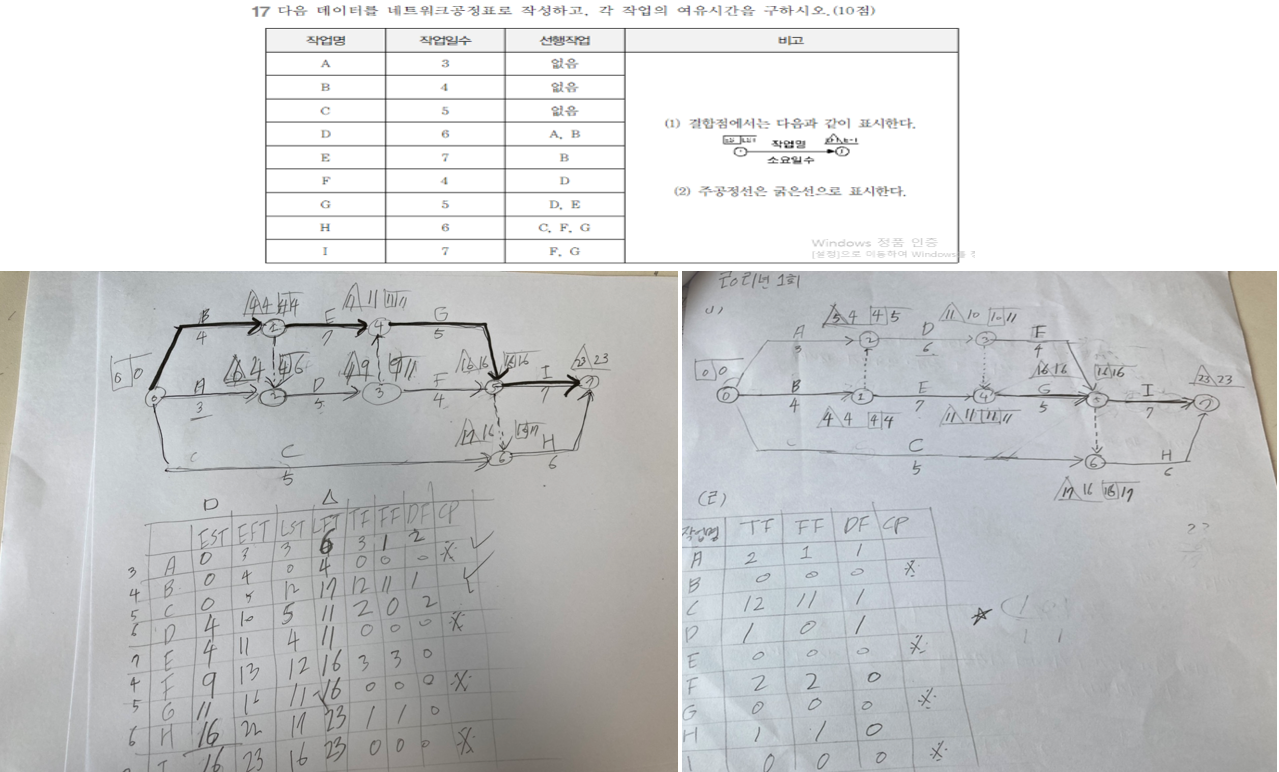 17 다음 데이터를 네트워크공정표로 작성하고, 각 작업의 여유시간을 구하시오.(10점)
작업명 작업일수 선행작업 비고
A 3 없음
B 4 없음
C 5 없음
D 6 A, B
E 7 B
F 4 D
G 5 D, E
H 6 C, F, G
I 7 F, G
(1) 결합점에서는 다음과 같이 표시한다.
작업명
소요일수
(2) 주공정선은 굵은선으로 표시한다.
Windows 정품 인증
[설정]으로 이동하여 Windows를
B 4
4 4 4 4
E 7
11 11 11
G 5
0 0
A 3
6 4 4 6
D 5
F 4
16 16 16 16
I 7
23 23
C 5
17 16
H 6
EST EFT LST LFT TF FF DF CP
3 A 0 3 3 6 3 1 2
4 B 0 4 0 4 0 0 0 ※
5 C 0 5 12 17 12 11 1
6 D 4 10 5 11 2 0 2
7 E 4 11 4 11 0 0 0 ※
4 F 9 13 12 16 3 3 0
5 G 11 16 11 16 0 0 0 ※
6 H 16 22 17 23 1 1 0
I 16 23 16 23 0 0 0 ※
1회
1)
A 3
5 4 4 5
D 6
11 10 10 11
F 4
0 0
B 4
4 4 4 4
E 7
11 11 11 11
G 5
16 16 16 16
I 7
23 23
C 5
17 16 16 17
H 6
(2)
작업명 TF FF DF CP
A 2 1 1
B 0 0 0 ※
C 12 11 1
D 1 0 1
E 0 0 0 ※
F 2 2 0
G 0 0 0 ※
H 1 1 0
I 0 0 0 ※